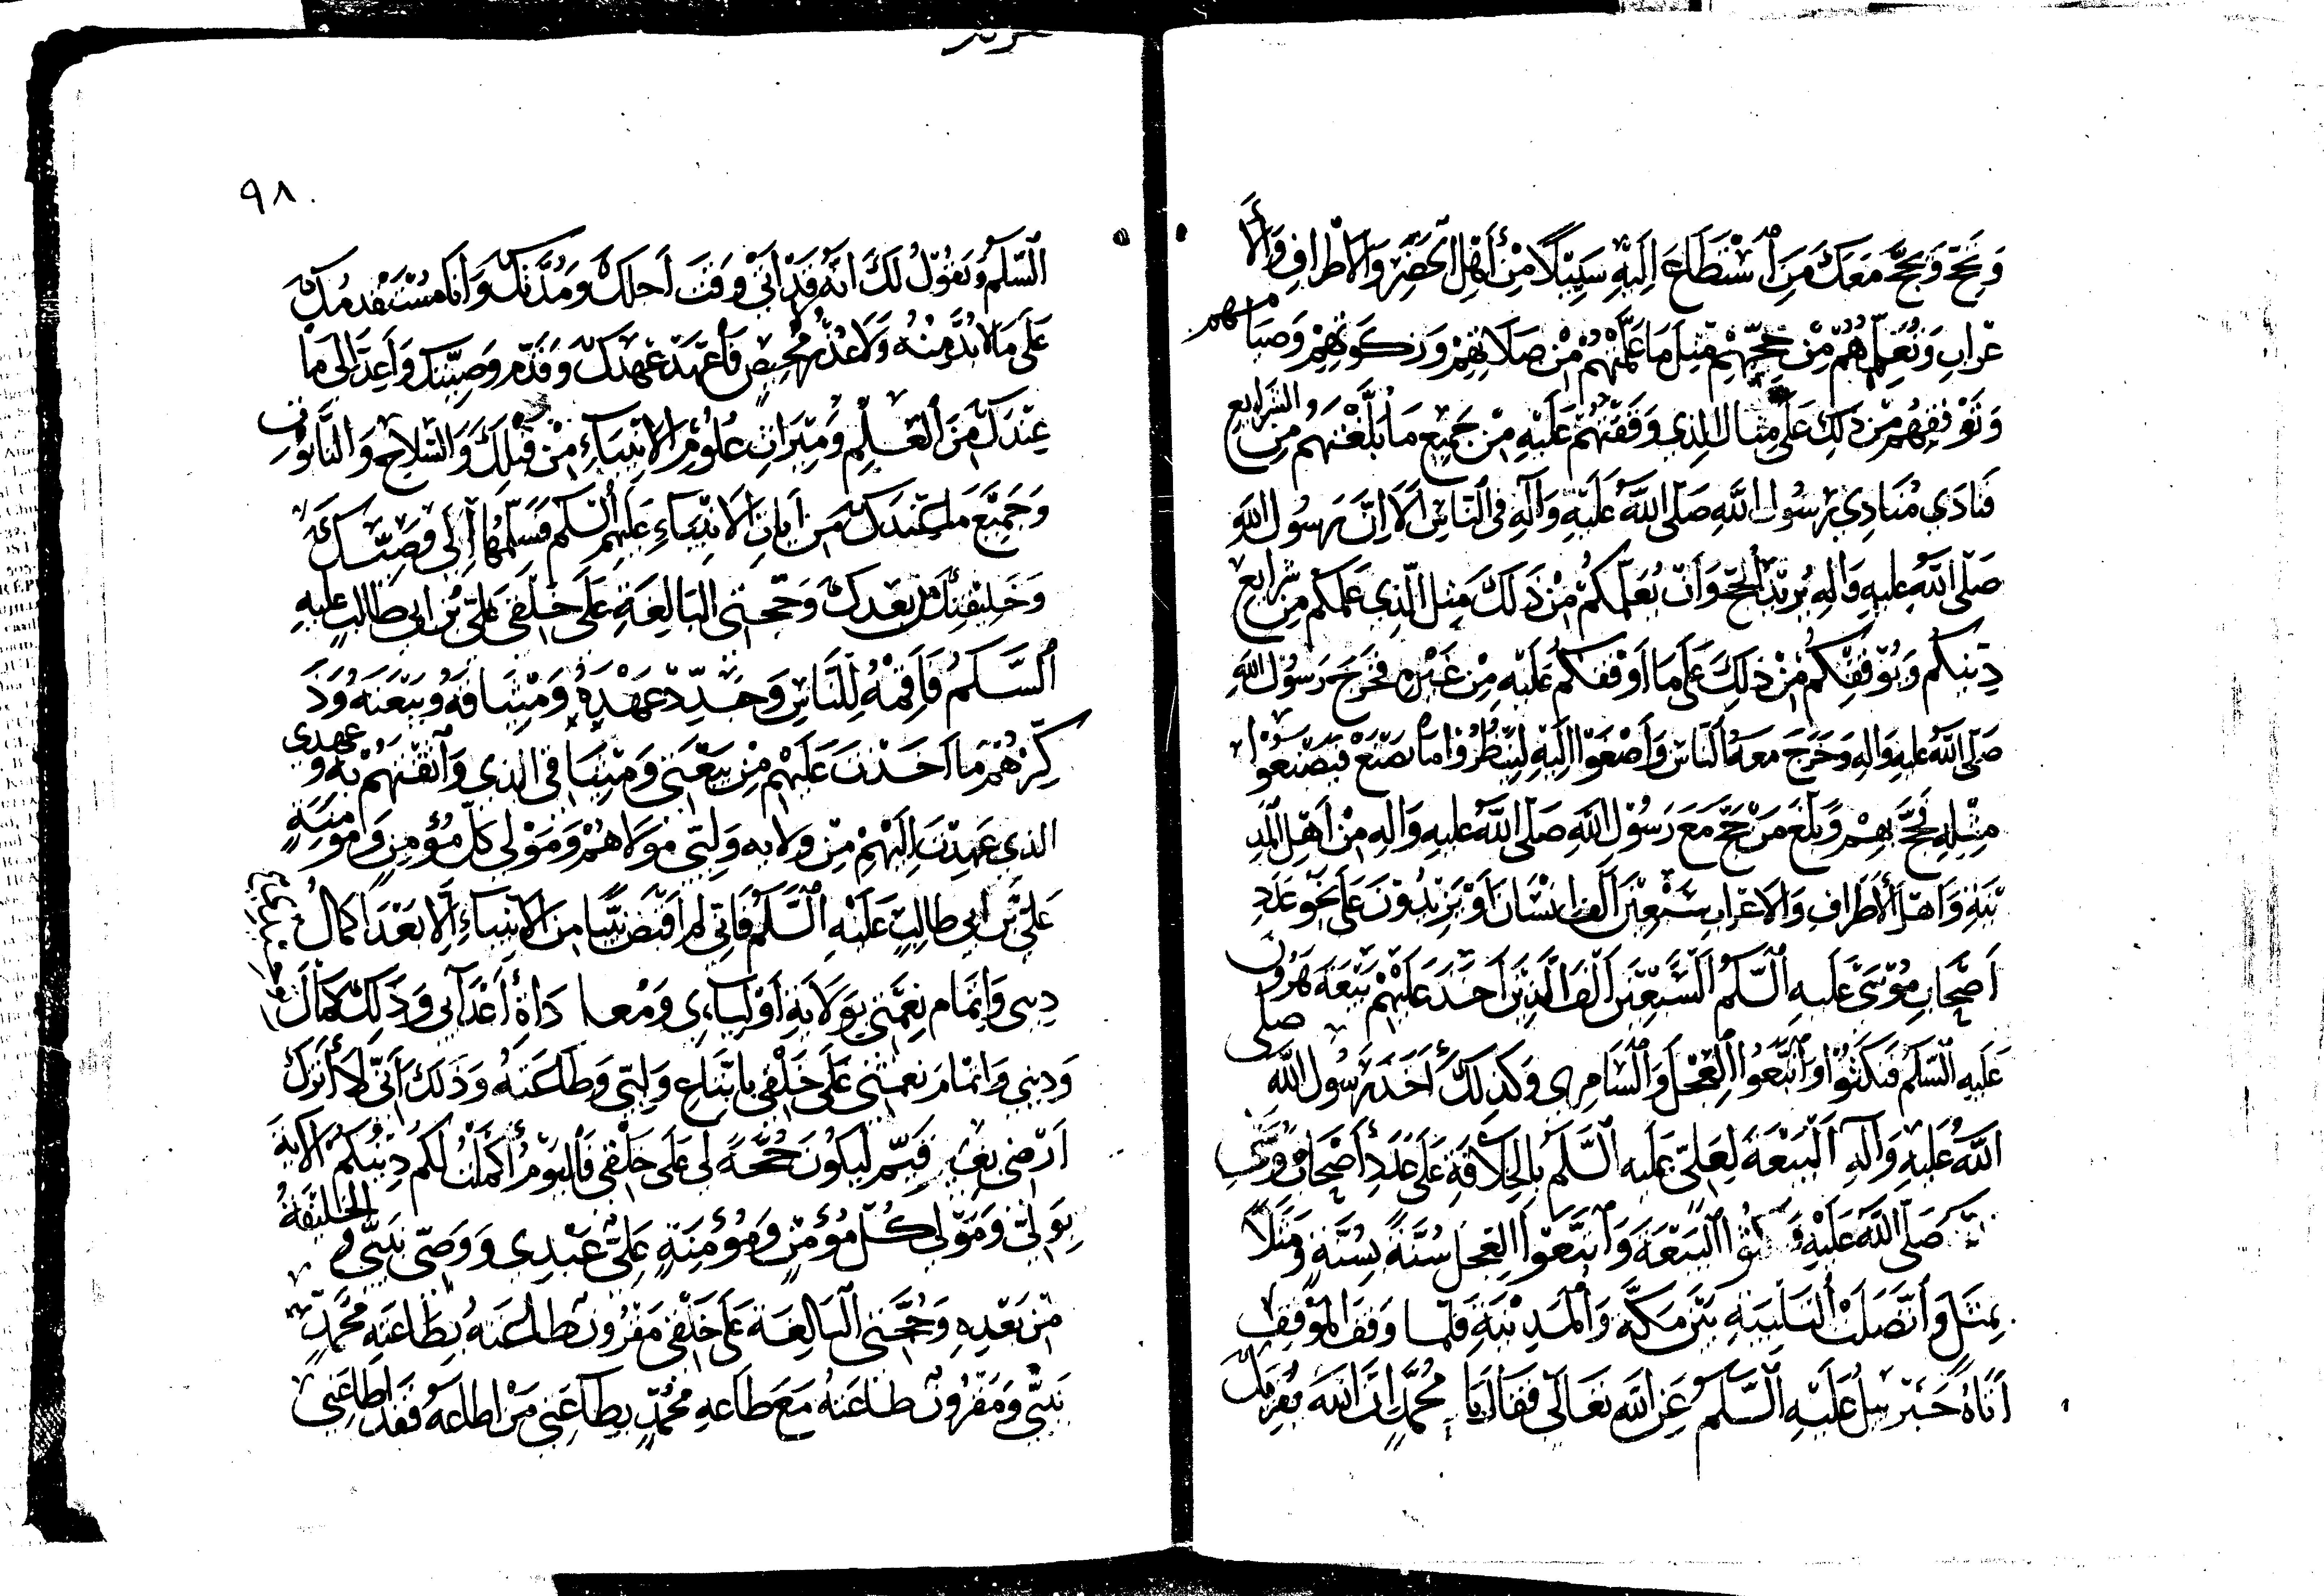 وَنَحُجَّ وَيَحُجَّ مَعَكَ مَنِ اسْتَطَاعَ اِلَيْهِ سَبِيْلًا مِنْ أَهْلِ الحَضَرِ وَالاَطْرَافِ وَالأَ
عْرَابِ وَتُعَلِّمَهُمْ مِنْ حَجِّهِمْ مِثْلَ مَا عَلَّمْتَهُمْ مِنْ صَلَاتِهِمْ وَزَكَوتِهِمْ وَصِيَامِهِم
وَتُوْقِفَهُم مِنْ ذَلِكَ عَلَى مِثَالِ الذِي وَقَفْتَهُمْ عَلَيْهِ مِنْ جَمِيْعِ مَا بَلَّغْتَهُم مِنَ الشَرَايِع
فَنَادَي مُنَادِي رَسُولِ اللَّهِ صَلَّى اللَّهُ عَلَيْهِ وَآلِهِ فِى النَّاسِ اَلَا اِنَّ رَسُولَ اللَّهِ
صَلَّى اللَّهُ عليهِ وَالِهِ يُرِيْدُ الحَجَّ وَاَنْ يُعَلِّمَكُمْ مِنْ ذَلِكَ مِثْلَ الَّذِي عَلَّمَكُم مِنْ شَرَايِع
دِيْنِكُم وَيُوْقِفَكُم مِنْ ذلِكَ عَلَى مَا اَوْقَفَكُم عَلَيْهِ مِنْ غَيْرِهِ فَخَرَجَ رَسُوْلُ اللَّهِ
صَلَّى اللَّهُ عليهِ وَالِهِ وَخَرَجَ مَعَهُ النَّاسُ وَأَصْغَوْا اِلَيْهِ لِيَنْظُرُوْا مَا يَصْنَعُ فَيَصْنَعُوْا
مِثْلِهِ فَحَجَّ بِهِمْ وَبَلَغَ مَنْ حَجَّ مَعَ رَسُوْلِ اللَّهِ صَلَّى اللَّهُ عليهِ وَالِهِ مِنْ اَهْلِ المَدِ
يْنَةِ وَاَهْلِ الأَطْرَافِ وَالاَعْرَابِ سَبْعِيْنَ اَلْفَ اِنْسَانٍ اَوْ يَزِيْدُوْنَ عَلَى نَحْوِ عَدَدِ
اَصْحَابِ مُوْسَى عَلَيهِ السَّلمُ السَّبْعِيْنَ اَلْفَ الَّذِيْنَ اَخَذَ عَلَيْهِمْ بَيْعَةَ هَرُوْن
عَلَيهِ السَّلَم فَنَكَثُوْا وَاتَّبَعُوْا الْعِجْلَ وَالسَّامِرِى وَكَذلِكَ أَخَذَ رَسُولُ اللَّهِ صلى
اللَّهُ عَلَيْهِ وَآلِهِ الْبَيْعَةَ لِعَلِيّ عَلَيهِ السَّلَم بِالْخِلَافَةِ عَلَى عَدَدِ أَصْحَابِ مُوْسَى
صَلَّى اللَّهُ عَلَيْهِ البَيْعَةَ وَاتَّبَعُوْا العِجْلَ سُنَّةً بِسُنَّةٍ وَمَثَلًا
بِمَثَلٍ وَاتَّصَلَتْ التَلْبِيَةِ بَيْنَ مَكَّةَ وَالْمَدِيْنَةِ فَلَمَّا وَقَفَ الْمَوْقِفَ
اَتَاهُ جَبْرَئِيلُ عَلَيْهِ السَّلَم عَنِ اللَّهِ تَعَالَى فَقَالَ يَا مُحَمَّد اِنَّ اللَّهَ يُقْرِئُكَ
٩٨
السَّلَمُ وَيَقُوْلُ لَكَ اِنَّهُ قَدْ اَتَى وَقْتَ اَجَلِكَ وَمُدَّتِكَ وَاَنَا مُسْتَقْدِمُكَ
عَلَى مَا لَا بُدَّ مِنْهُ وَلَا عَنْهُ مَحِيْص فَاعْهَدْ عَهْدَكَ وَقَدِّم وَصِيَّتَكَ وَاعْمِدْ اِلَى مَا
عِنْدَكَ مِنَ الْعِلْمِ وَمِيْرَاثِ عُلُوْمِ الاَنْبِيَاءِ مِنْ قَبْلِكَ وَالسِّلَاحِ وَالتَّابُوْت
وَجَمِيْعَ مَا عِنْدَكَ مِن اَيَاتِ الاَنْبِيَاءِ عَلَيْهِم السَّلم فَسَلِّمْهَا اِلَى وَصِيِّكَ
وَخَلِيْفَتِكَ مِنْ بَعْدِكَ وَحُجَّتِى البَالِغَةِ عَلَى خَلْقِى عَلِيّ بْنِ ابى طَالِبٍ عليهِ
السَّلَمُ فَاَقِمْهُ لِلنَّاسِ وَجَدِّدْ عَهْدَهُ وَمِيْثَاقَهُ وَبَيْعَتَهُ وَذَ
كِّرْهُمْ مَا اَخَذْتَ عَلَيْهِمْ مِنْ بَيْعَتِي وَمِيْثَاقِى الذي وَاثَقْتَهُمْ بِهِ وَعَهْدِي
الذي عَهِدْتَ اِلَيْهِمْ مِنْ وِلَايةِ وَلِيّي مَوْلَاهُمْ وَمَوْلَى كُلِّ مُؤْمِنٍ وَمُؤمِنَةٍ
عَلِيِّ بْنِ اَبِي طَالِبٍ عَلَيْهِ السَّلَمُ فَاِنّي لَم اَقْبِض نَبِيًّا مِنَ الاَنْبِيَاءِ اِلَّا بَعْدَ اِكمَالِ
دِيني وَاِتمَام نِعْمَتِي بِوَلَايَةِ اَوْلِيَاءِى وَمُعَادَاةِ اَعْدَآئِى وَذَلِكَ كَمَالُ
وَدِيْنِي وَاِتْمَامُ نِعْمَتِي عَلَى خَلْقِى بِاتِّبَاعِ وَلِيّي وَطَاعَتِهِ وَذَلِكَ اَنّي لَا أَتْرُكُ
اَرْضِى بِغَيْرِ قَيِّم لِيَكُونَ حُجَّةً لى عَلَى خَلْقِى فَاليَوْمُ أَكْمَلْتُ لَكُم دِيْنَكُم الاَيةَ
بِوَلِيّي وَمَوْلَى كُلِّ مُؤْمِنٍ وَمُؤمِنَةٍ عَلِيٍّ عَبْدِي وَوَصِيّ نَبِيّي وَالخَلِيْفَةُ
مِنْ بَعْدِهِ وَحُجَّتِى الْبَالِغَة عَلَى خَلْقِى مَقْرُونٌ طَاعَتهُ بِطَاعَةِ مُحَمَّدٍ
نَبِيّي وَمَقْرُوْنٌ طَاعَتهُ مَعَ طَاعَةِ مُحَمَّدٍ بِطَاعَتِي مَنْ اَطَاعَهُ فَقَدْ اَطَاعَنِي